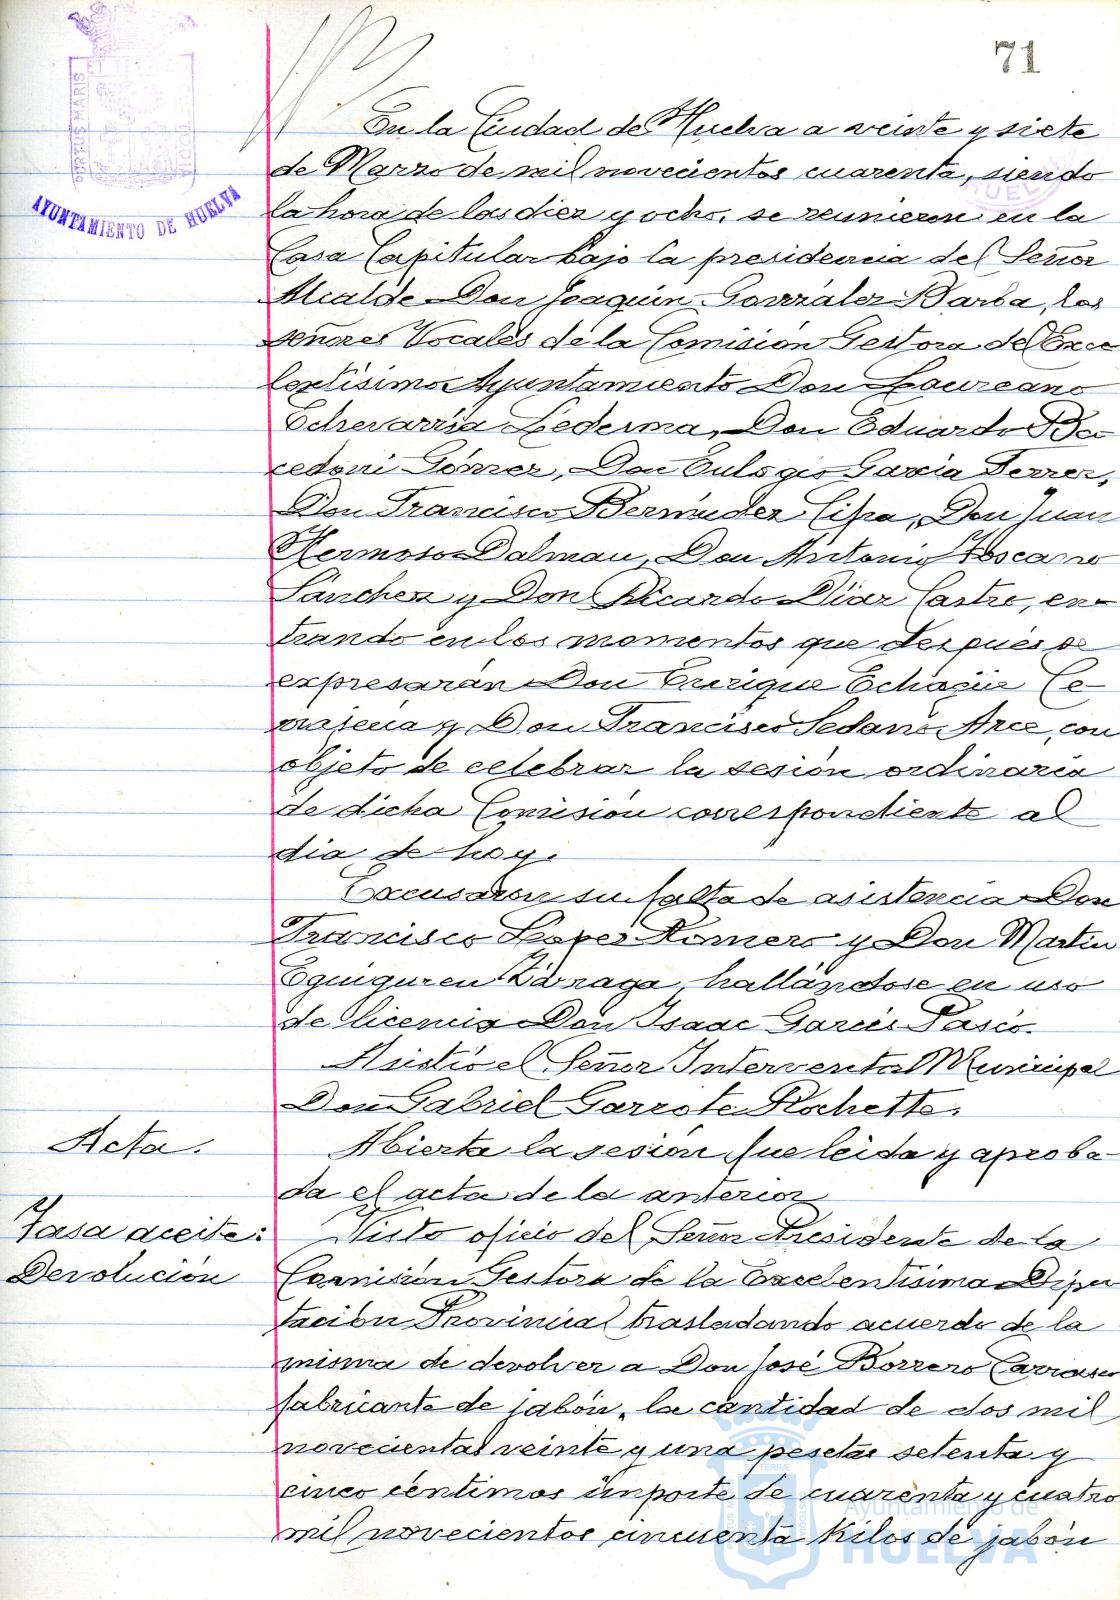 71
PORTUS MARIS ET TERRÆ CUSTODIA
AYUNTAMIENTO DE HUELVA
HUELVA
En la Ciudad de Huelva a veinte y siete
de Marzo de mil novecientos cuarenta, siendo
la hora de las diez y ocho, se reunieron en la
Casa Capitular bajo la presidencia del Señor
Alcalde Don Joaquín González Barba, los
señores Vocales de la Comisión Gestora del Exce
lentísimo Ayuntamiento Don Laureano
Echevarría Ledesma, Don Eduardo Be
cedoni Gómez, Don Eulogio García Ferrer,
Don Francisco Bermúdez Cifra, Don Juan
Hermoso Dalmau, Don Antonio Toscano
Sánchez y Don Ricardo Díaz Castro, en-
trando en los momentos que después se
expresarán Don Enrique Echagüe Ce-
y Don Francisco Sedano Arce, con
objeto de celebrar la sesión ordinaria
de dicha Comisión correspondiente al
dia de hoy.
Excusaron su falta de asistencia Don
Francisco López Romero y Don Martín
Eguiguren Zárraga, hallándose en uso
de licencia Don Isaac García
Asistió el Señor Interventor Municipal
Don Gabriel Garrote Rochette.
Acta.
Abierta la sesión fue leida y aproba-
da el acta de la anterior
Tasa aceite:
Devolución
Visto oficio del Señor Presidente de la
Comisión Gestora de la Excelentísima Dipu
tación Provincial trasladando acuerdo de la
misma de devolver a Don José Borrero Carrasco
fabricante de jabón, la cantidad de dos mil
novecientas veinte y una pesetas setenta y
cinco céntimos importe de cuarenta y cuatro
mil novecientos cincuenta kilos de jabón
Ayuntamiento de
HUELVA